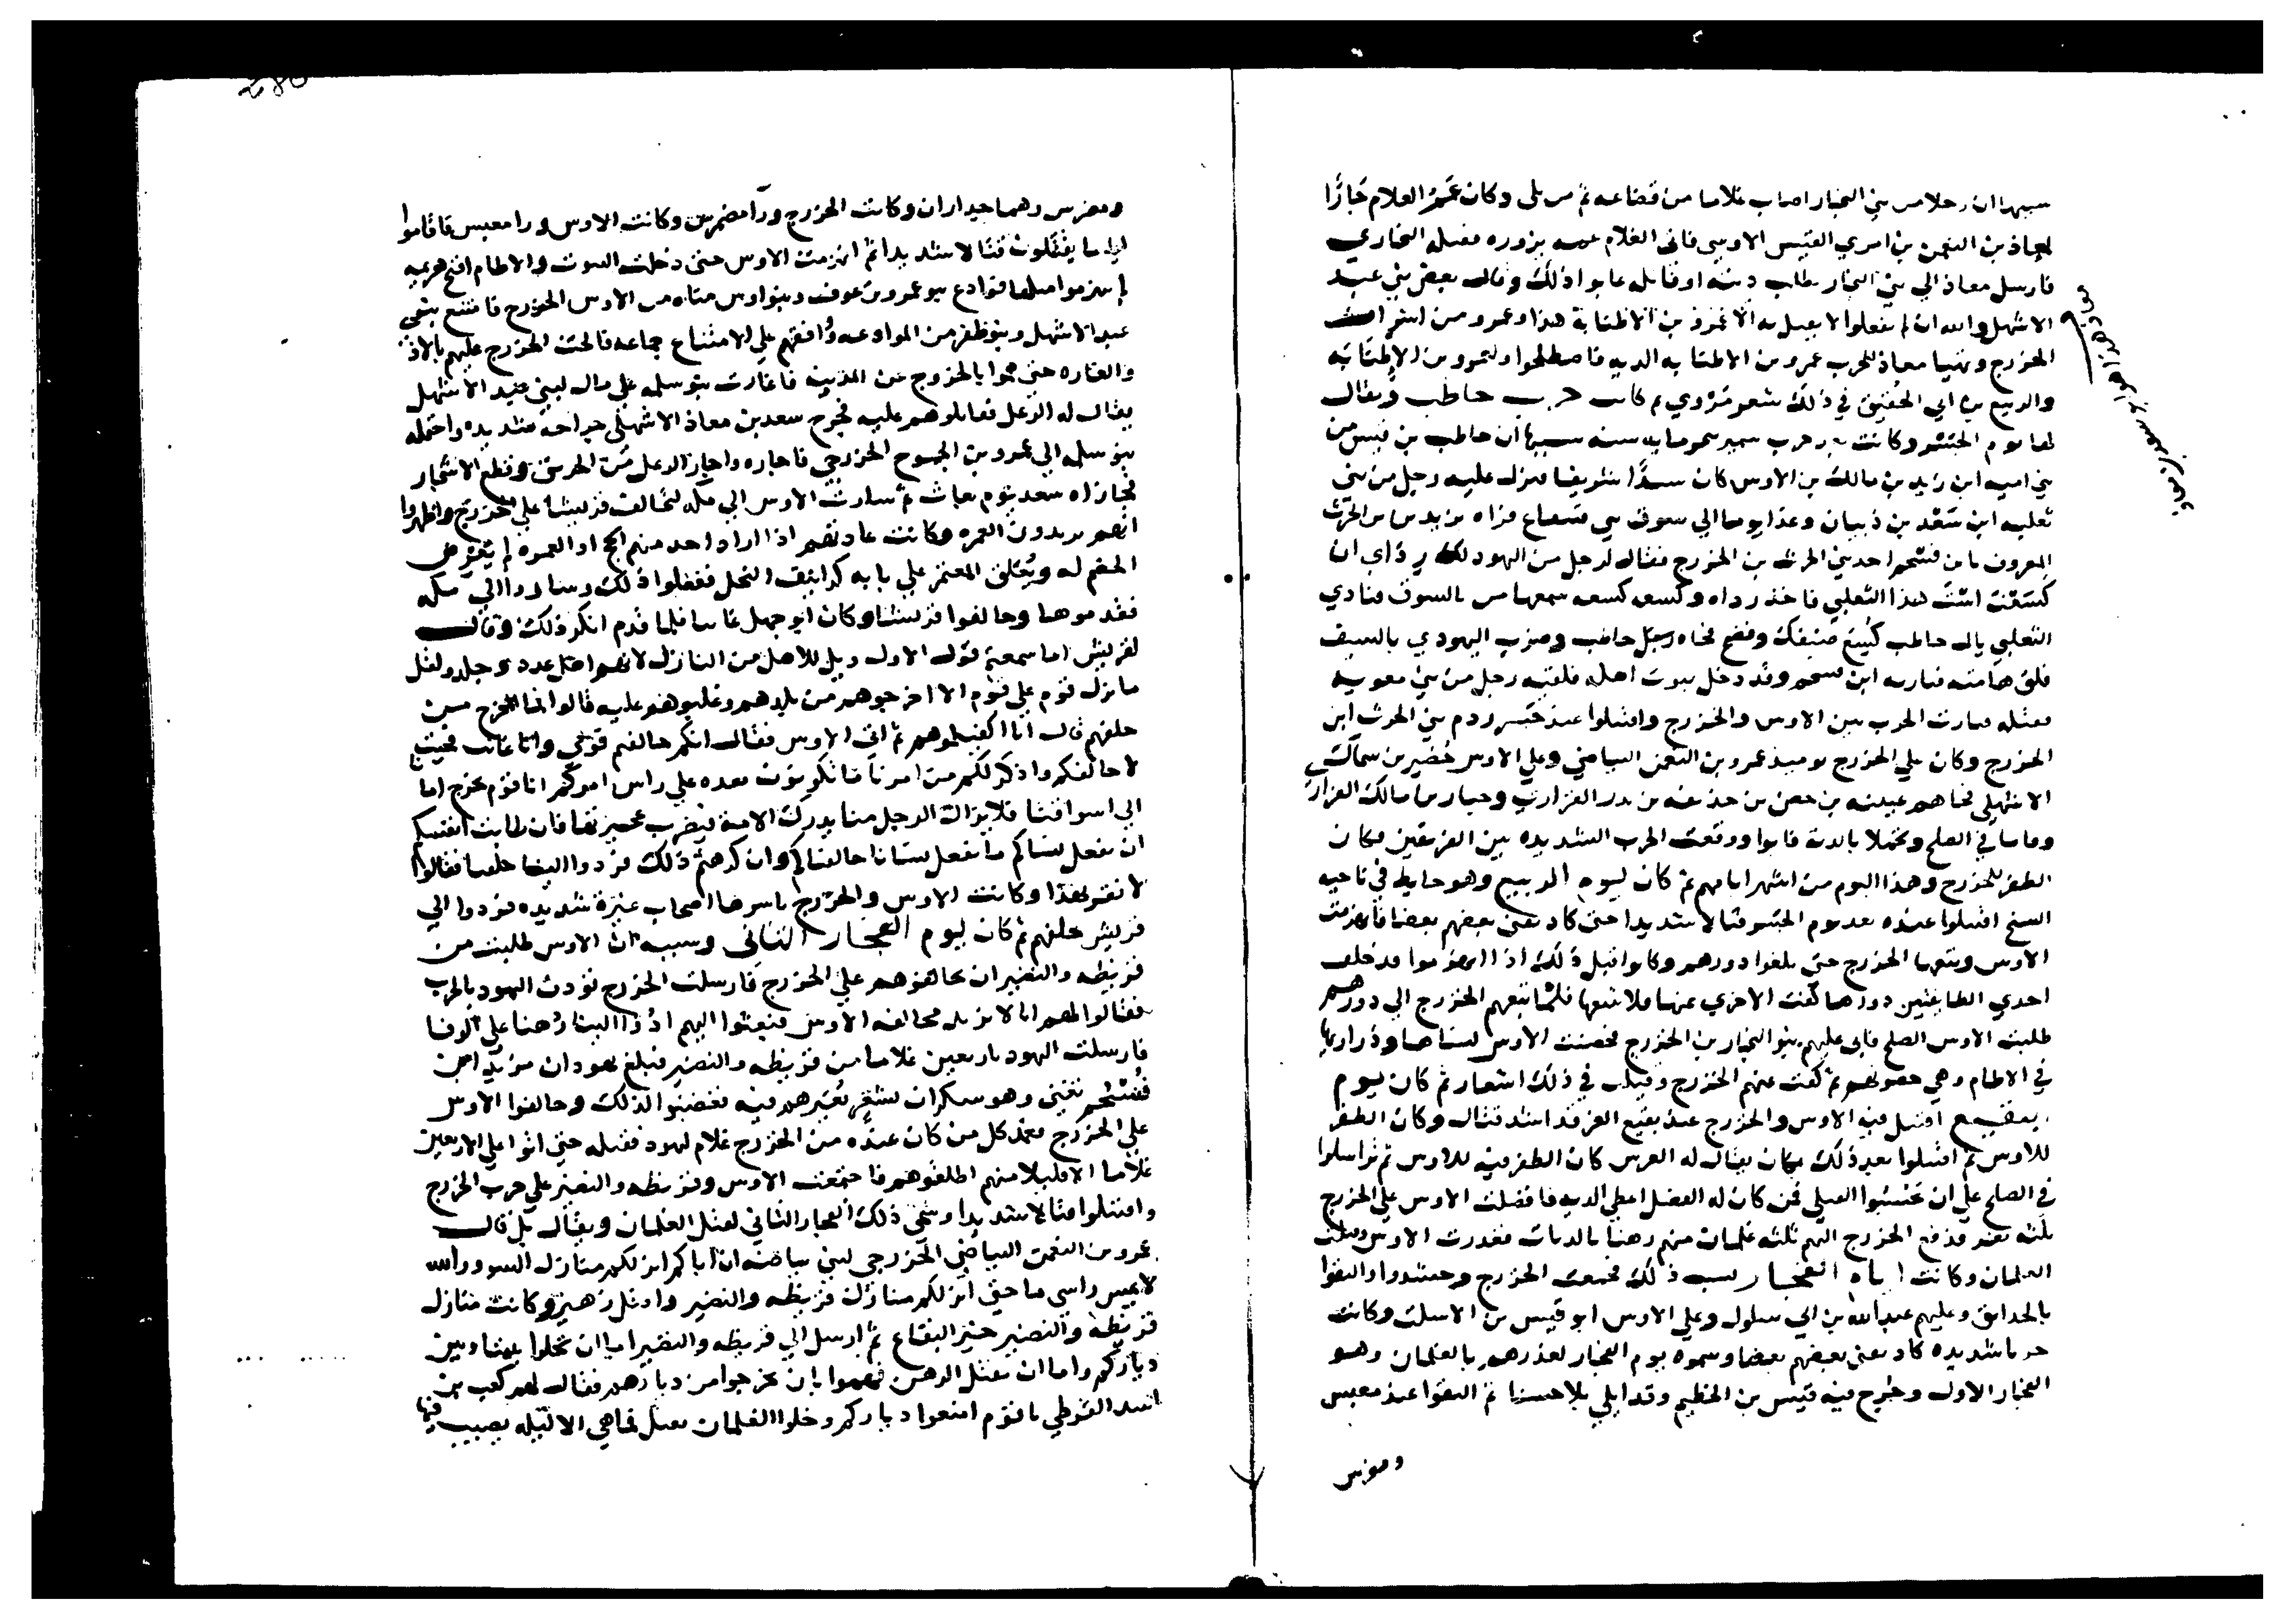 سببها ان رجلا من بني النجار اصاب غلاما من قضاعه ثم من بلي وكان عم الغلام جارا
لمعاذ بن النعمن بن امري القيس الاوسي فاتى الغلام عمه يزوره فقتله النجاري
فارسل معاذ الي بني النجار بطلب ديته او قاتله فابوا ذلك وقال بعض بني عبد
الاشهل والله ان لم تفعلوا لا يقبل به الا عمرو بن الاطنابة هذا وعمرو من اشراف
الخزرج وتهيا معاذ للحرب عمرو بن الاطنابه الديه فاصطلحوا ولعمرو بن الاطنابه
والربيع بن ابي الحقيق في ذلك شعر مروي ثم كانت حرب حاطب ويقال
لها يوم الجسر وكانت بعد حرب سمير بنحو مايه سنه سببها ان حاطب بن قيس من
بني اميه ابن زيد بن مالك بن الاوس كان سيدا شريفا فنزل عليه رجل من بني
ثعلبه ابن سعد بن ذبيان وغدا يوما الي سوق بني قينقاع فراه يزيد من الحرث
المعروف بابن فسحم احد بني الحرث بن الخزرج فقال لرجل من اليهود لك رداي ان
كسعت است هذا الثعلبي فاخذ رداه وكسعه كسعه سمعها من بالسوق فنادي
الثعلبي يال حاطب كسع ضيفك وفضح فجاه رجل حاطب وضرب اليهودي بالسيف
فلق هامته فثار به ابن فسحم وقد دخل بيوت اهله فلقيه رجل من بني معويه
فقتله فثارت الحرب بين الاوس والخزرج واقتتلوا عند جسر ردم بني الحرث ابن
الخزرج وكان علي الخزرج يوميذ عمرو بن النعمن البياضي وعلي الاوس حضير بن سماك
الاشهلي فجاهم عيينه بن حصن بن حذيفه بن بدر الفزاري وخيار بن مالك الفزاري
وقاما في الصلح وتحملا بالدية فابوا ووقعت الحرب الشديده بين الفريقين فكان
الظفر للخزرج وهذا اليوم من اشهر ايامهم ثم كان يوم الربيع وهو حايط في ناحيه
السنح اقتتلوا عنده بعد يوم الجسر قتالا شديدا حتى كاد يفني بعضهم بعضا فانهزمت
الاوس وتبعها الخزرج حتى بلغوا دورهم وكانوا قبل ذلك اذا انهزموا فدخلت
احدي الطايفتين دورها كفت الاخري عنها فلا تتبعها فلما تبعهم الخزرج الي دورهم
طلبت الاوس الصلح فابى عليهم بنو النجار بن الخزرج فحصنت الاوس نساها وذراريها
في الاطام وهي حصونهم ثم كفت عنهم الخزرج وقيلت في ذلك اشعار ثم كان يوم
بقيع اقتتل فيه الاوس والخزرج عند بقيع الغرقد اشد قتال وكان الظفر
للاوس ثم اقتتلوا بعد ذلك بمكان يقال له الغرس كان الظفر فيه للاوس ثم تراسلوا
في الصلح علي ان تحسبوا القتلي فمن كان له الفضل اعطي الديه فافضلت الاوس علي الخزرج
ثلثه نفر فدفع الخزرج اليهم ثلثه غلمان منهم رهنا بالديات فغدرت الاوس وقتلت
الغلمان وكانت ايام الفجار بسبب ذلك فجمعت الخزرج وحشدوا والتقوا
بالحدايق وعليهم عبدالله بن ابي سلول وعلي الاوس ابو قيس بن الاسلت وكانت
حربا شديده كاد يفني بعضهم بعضا وسموه يوم الفجار لغدرهم بالغلمان وهو
الفجار الاول وخرج فيه قيس بن الخطيم وقد ابلي بلا حسنا ثم التقوا عند معبس
ومضرس
ومضرس وهما جداران وكانت الخزرج ورا مضرس وكانت الاوس ورا معبس فاقاموا
اياما يقتتلون قتالا شديدا ثم انهزمت الاوس حتى دخلت البيوت والاطام اقبح هزيمه
لم ينهزموا مثلها فوادع بنو عمرو بن عوف وبنو اوس مناه من الاوس الخزرج فامتنع بنو
عبد الاشهل وبنو ظفر من الموادعه ووافقهم علي الامتناع جماعه فالحت الخزرج عليهم بالاذي
والغاره حتى هموا بالخروج عن المدينه فاغارت بنو سلمه علي مال لبني عبد الاشهل
يقال له الرعل فقاتلوهم عليه فجرح سعد بن معاذ الاشهلي جراحة شديده واحتمله
بنو سلمه الي عمرو بن الجموح الخزرجي فاجاره واجار الرعل من الحرق وقطع الاشجار
فجازاه سعد يوم بعاث ثم سارت الاوس الي مكه لتحالف قريشا علي الخزرج واظهروا
انهم يريدون العمره وكانت عادتهم اذا اراد احد منهم الحج او العمره لم يعرض
الخصم له ويعلق المعتمر علي بابه كرانيف النخل ففعلوا ذلك وساروا الي مكه
فقدموها وحالفوا قريشا وكان ابو جهل غايبا فلما قدم انكر ذلك وقال
لقريش اما سمعتم قول الاول ويل للاهل من النازل لانهم اهل عدد وجلد ولقل
ما نزل قوم علي قوم الا اخرجوهم من بلدهم وغلبوهم عليه قالوا فما المخرج من
حلفهم قال انا اكفيكموهم ثم اتى الاوس فقال انكم حالفتم قومي وانا غايب فجيت
لاحالفكم واذكر لكم من امرنا ما تكونون بعده علي راس امركم انا قوم تخرج اماونا
الي اسواقنا فلا يزال الرجل منا يدرك الامة فيضرب عجيزتها فان طابت انفسكم
ان يفعل نساكم ما يفعل نسانا حالفناكم وان كرهتم ذلك فردوا الينا حلفنا فقالوا
لا نقر بهذا وكانت الاوس والخزرج باسرها اصحاب غيرة شديده فردوا الي
قريش حلفهم ثم كان يوم الفجار الثاني وسببه ان الاوس طلبت من
قريظه والنضير ان يحالفوهم علي الخزرج فارسلت الخزرج توذن اليهود بالحرب
فقالوا لهم انا لا نريد محالفه الاوس فبعثوا اليهم ادوا الينا رهنا علي الوفا
فارسلت اليهود باربعين غلاما من قريظه والنضير فبلغ يهود ان يزيد ابن
فسحم تغنى وهو سكران بشعر يعيرهم فيه فغضبوا لذلك وحالفوا الاوس
علي الخزرج فعمد كل من كان عنده من الخزرج غلام ليهود فقتله حتى اتوا علي الاربعين
غلاما الا قليلا منهم اطلقوهم فاجتمعت الاوس وقريظه والنضير علي حرب الخزرج
واقتتلوا قتالا شديدا وسمي ذلك الفجار الثاني لقتل الغلمان ويقال بل قال
عمرو بن النعمن البياضي الخزرجي لبني بياضه ان اباكم انزلكم منازل السوء والله
لا يمس راسي ما حتى انزلكم منازل قريظه والنضير واقتل رهنهم وكانت منازل
قريظه والنضير خير البقاع ثم ارسل الي قريظه والنضير اما ان تخلوا بيننا وبين
دياركم واما ان نقتل الرهن فهموا بان يخرجوا من ديارهم فقال لهم كعب بن
اسد القرظي يا قوم امنعوا دياركم وخلوا الغلمان يقتل فما هي الا ليله يصيب فيها